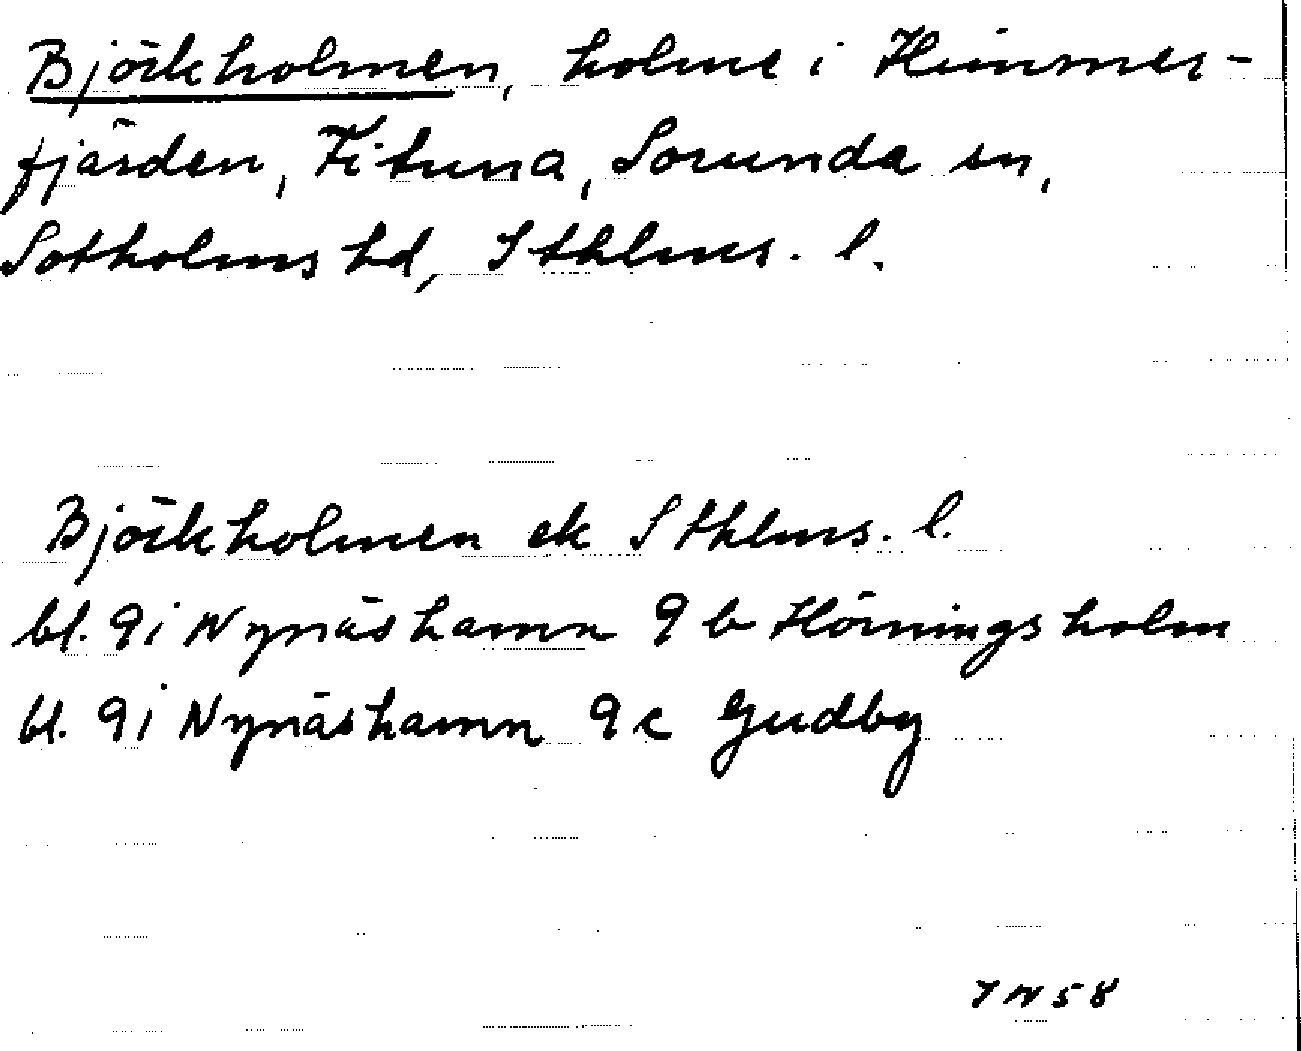 Björkholmen, holme i Himmer-
fjärden, Fituna, Sorunda sn,
Sotholms hd, Sthlms. l.
Björkholmen ek Sthlms. l.
bl. 9i Nynäshamn 9 b Hörningsholm
bl. 9i Nynäshamn 9 c Gudby
IN58